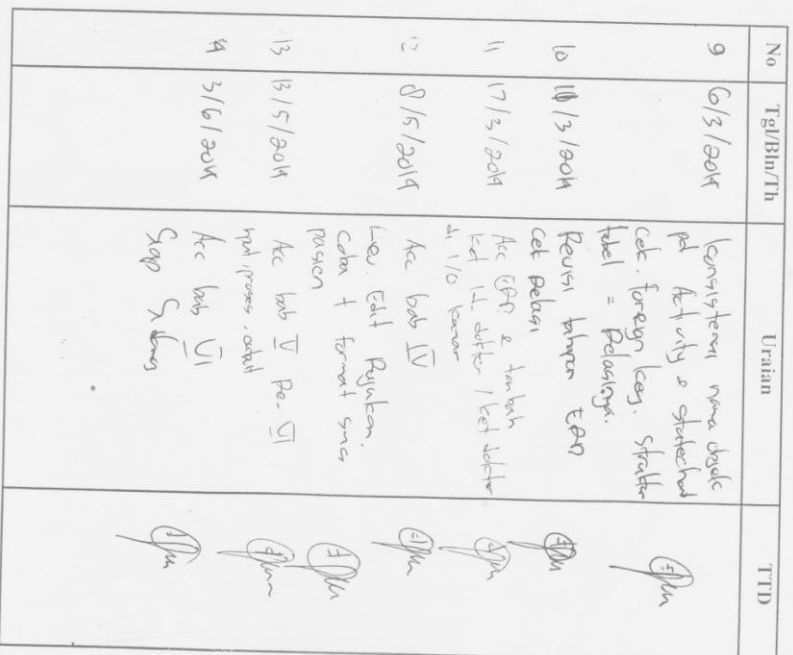 No Tgl/Bln/Th Uraian TTD
9 6/3/2019 Konsistensi nama objek
pd Activity & statechart
cek. foreign key. struktur
tabel = Relasinya.
10 /3/2019 Revisi tahapan ERD
cek Relasi
11 17/3/2019 Acc ERD & tambah
ket Id dokter / ket dokter
di kamar
12 8/5/2019 Acc bab IV
Edit Rujukan.
Coba + format
pasien
13 13/5/2019 Acc bab V Per VI
input, proses, output
14 3/6/2019 Acc bab VI
Siap Sidang